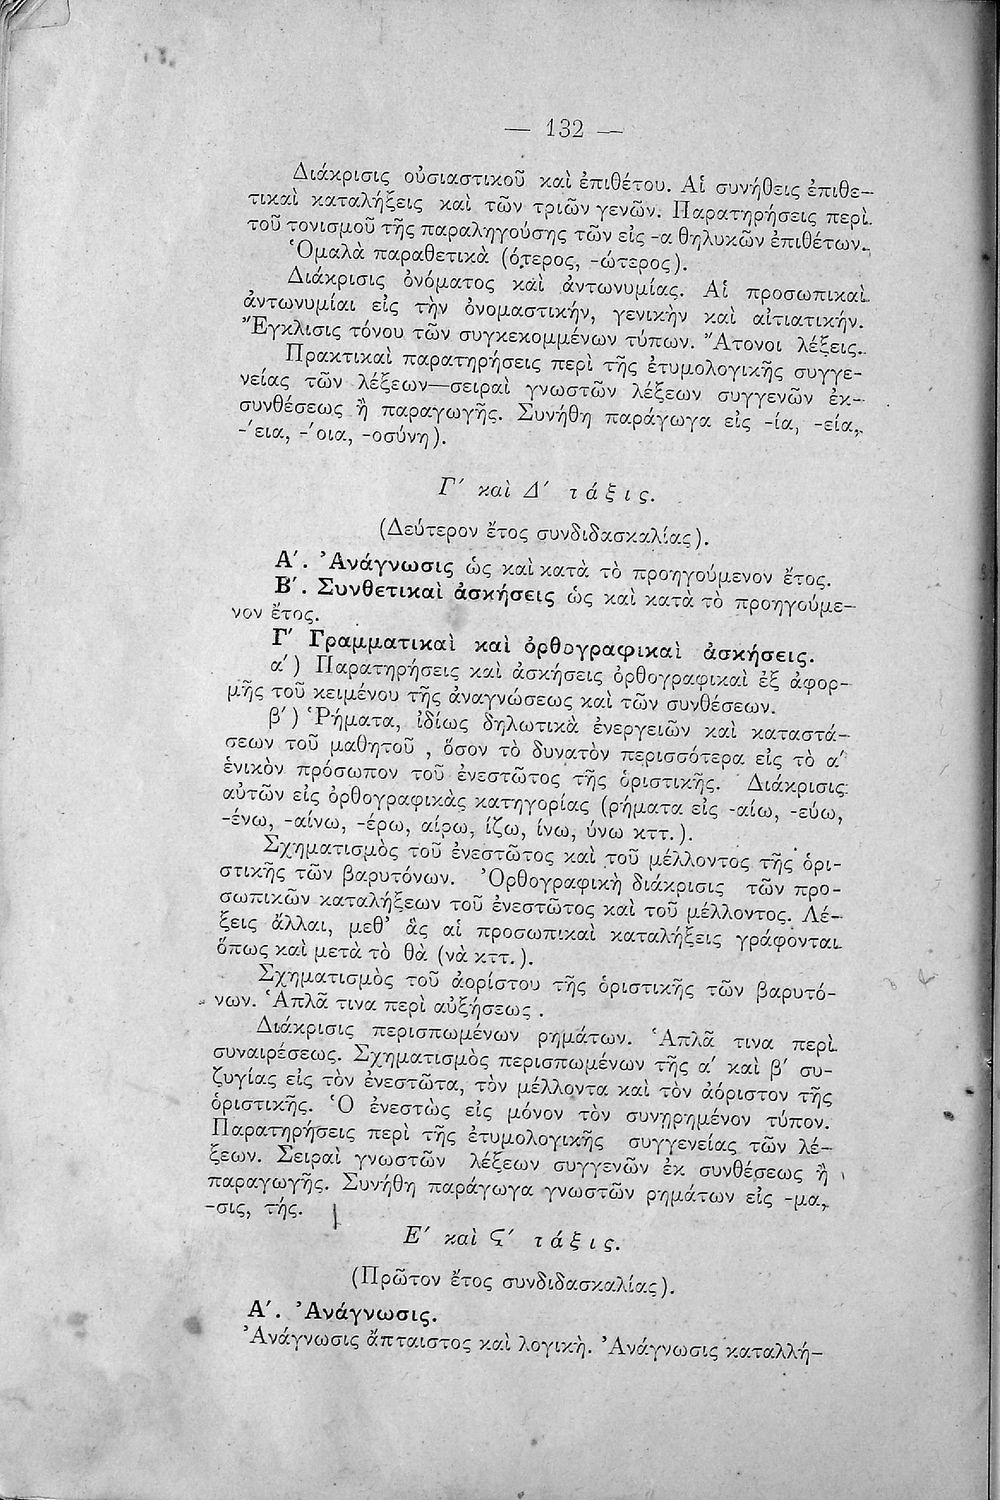 — 132 —
Διάκρισις οὐσιαστικοῦ καὶ ἐπιθέτου. Αἱ συνήθεις ἐπιθε-
τικαὶ καταλήξεις καὶ τῶν τριῶν γενῶν. Παρατηρήσεις περὶ
τοῦ τονισμοῦ τῆς παραληγούσης τῶν εἰς -α θηλυκῶν ἐπιθέτων.
Ὁμαλὰ παραθετικὰ (ότερος, -ώτερος).
Διάκρισις ὀνόματος καὶ ἀντωνυμίας. Αἱ προσωπικαὶ
ἀντωνυμίαι εἰς τὴν ὀνομαστικήν, γενικὴν καὶ αἰτιατικήν.
Ἔγκλισις τόνου τῶν συγκεκομμένων τύπων. Ἄτονοι λέξεις.
Πρακτικαὶ παρατηρήσεις περὶ τῆς ἐτυμολογικῆς συγγε-
νείας τῶν λέξεων—σειραὶ γνωστῶν λέξεων συγγενῶν ἐκ
συνθέσεως ἢ παραγωγῆς. Συνήθη παράγωγα εἰς -ία, -εία,
-΄εια, -΄οια, -οσύνη).
Γ΄ καὶ Δ΄ τάξις.
(Δεύτερον ἔτος συνδιδασκαλίας).
Α΄. Ἀνάγνωσις ὡς καὶ κατὰ τὸ προηγούμενον ἔτος.
Β΄. Συνθετικαὶ ἀσκήσεις ὡς καὶ κατὰ τὸ προηγούμε-
νον ἔτος.
Γ΄ Γραμματικαὶ καὶ ὀρθογραφικαὶ ἀσκήσεις.
α΄) Παρατηρήσεις καὶ ἀσκήσεις ὀρθογραφικαὶ ἐξ ἀφορ-
μῆς τοῦ κειμένου τῆς ἀναγνώσεως καὶ τῶν συνθέσεων.
β΄) Ῥήματα, ἰδίως δηλωτικὰ ἐνεργειῶν καὶ καταστά-
σεων τοῦ μαθητοῦ , ὅσον τὸ δυνατὸν περισσότερα εἰς τὸ α΄
ἑνικὸν πρόσωπον τοῦ ἐνεστῶτος τῆς ὁριστικῆς. Διάκρισις
αὐτῶν εἰς ὀρθογραφικὰς κατηγορίας (ρήματα εἰς -αίω, -εύω,
-ένω, -αίνω, -έρω, αίρω, ίζω, ίνω, ύνω κττ.).
Σχηματισμὸς τοῦ ἐνεστῶτος καὶ τοῦ μέλλοντος τῆς ὁρι-
στικῆς τῶν βαρυτόνων. Ὀρθογραφικὴ διάκρισις τῶν προ-
σωπικῶν καταλήξεων τοῦ ἐνεστῶτος καὶ τοῦ μέλλοντος. Λέ-
ξεις ἄλλαι, μεθ’ ἃς αἱ προσωπικαὶ καταλήξεις γράφονται
ὅπως καὶ μετὰ τὸ θὰ (νὰ κττ.).
Σχηματισμὸς τοῦ ἀορίστου τῆς ὁριστικῆς τῶν βαρυτό-
νων. Ἁπλᾶ τινα περὶ αὐξήσεως .
Διάκρισις περισπωμένων ρημάτων. Ἁπλᾶ τινα περὶ
συναιρέσεως. Σχηματισμὸς περισπωμένων τῆς α΄ καὶ β΄ συ-
ζυγίας εἰς τὸν ἐνεστῶτα, τὸν μέλλοντα καὶ τὸν ἀόριστον τῆς
ὁριστικῆς. Ὁ ἐνεστὼς εἰς μόνον τὸν συνῃρημένον τύπον.
Παρατηρήσεις περὶ τῆς ἐτυμολογικῆς συγγενείας τῶν λέ-
ξεων. Σειραὶ γνωστῶν λέξεων συγγενῶν ἐκ συνθέσεως ἢ
παραγωγῆς. Συνήθη παράγωγα γνωστῶν ρημάτων εἰς -μα,
-σις, τής.
Ε΄ καὶ Ϛ΄ τάξις.
(Πρῶτον ἔτος συνδιδασκαλίας).
Α΄. Ἀνάγνωσις.
Ἀνάγνωσις ἄπταιστος καὶ λογικὴ. Ἀνάγνωσις καταλλή-